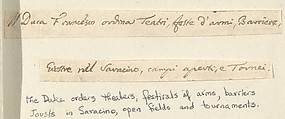 Il Duca Francesco ordina Teatri, feste d'armi, Barriere,
Giostre nel Saracino, campi aperti, e Tornei.
the Duke orders theaters, festivals of arms, barriers
Jousts in Saracino, open fields and tournaments.